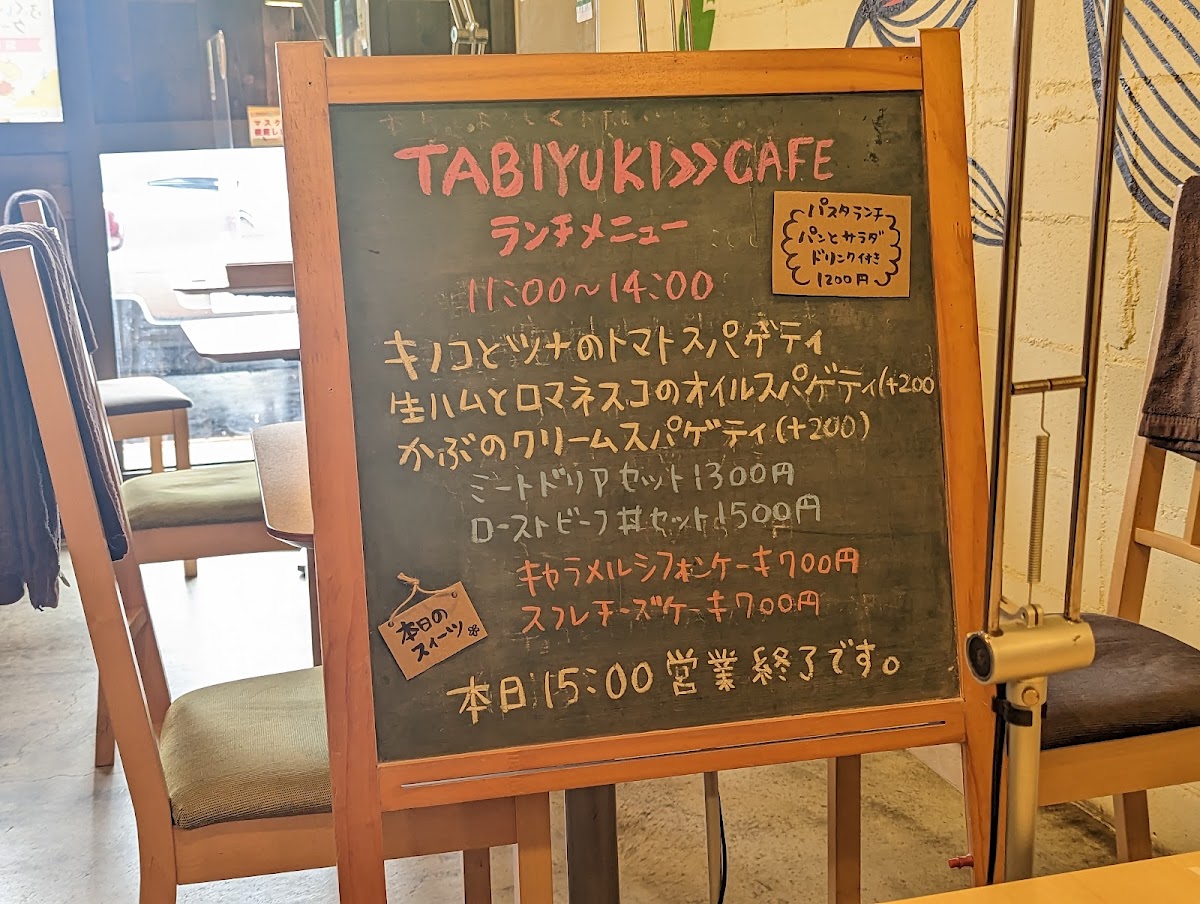 TABIYUKI>>CAFE
ランチメニュー
11:00～14:00
パスタランチ
パンとサラダ
ドリンク付き
1200円
キノコとツナのトマトスパゲティ
生ハムとロマネスコのオイルスパゲティ(+200
かぶのクリームスパゲティ(+200)
ミートドリアセット1300円
ローストビーフ丼セット1500円
キャラメルシフォンケーキ700円
スフレチーズケーキ700円
本日の
スイーツ
本日15:00営業終了です。